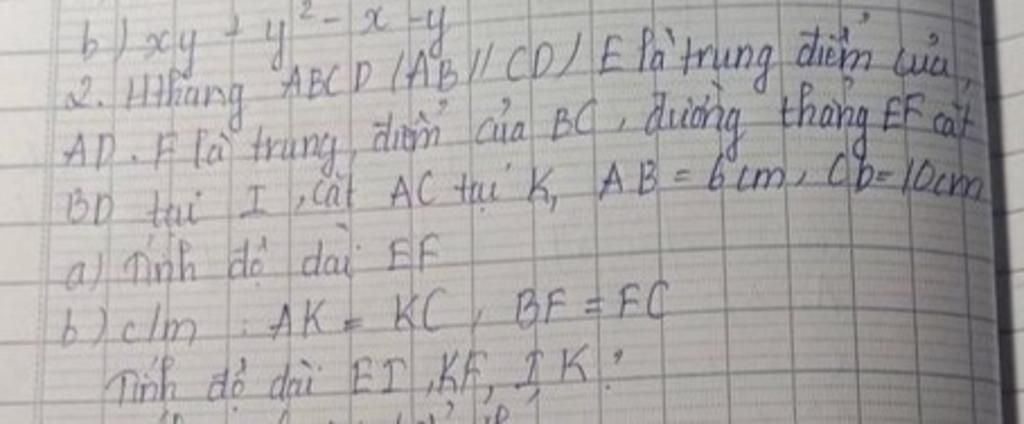 b) xy + y² - x - y
2. Hthang ABCD (AB // CD) E là trung điểm của
AD. F là trung điểm của BC, đường thẳng EF cắt
BD tại I, cắt AC tại K, AB = 6cm, CD = 10cm
a) Tính độ dài EF
b) c/m : AK = KC, BF = FC
Tính độ dài EI, KF, IK?